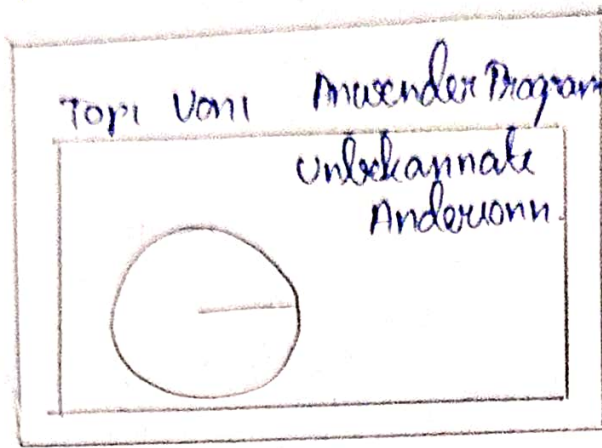 Topi Voni Anwender Program
Unbekannate
Anderionn.